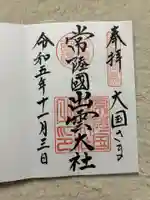 奉拝
大国さま
常陸國出雲大社
令和五年十一月三日